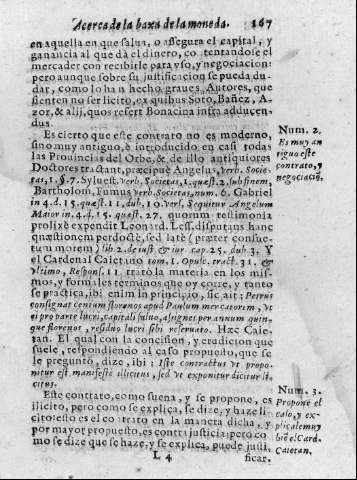 Acerca de la baxa de la moneda. 167
en aquella en que salua, o assegura el capital, y
ganancia al que dà el dinero, co tentandose el
mercader con recibirle para vso, y negociacion:
pero aunque sobre su justificacion se pueda du-
dar, como lo han hecho graues Autores, que
sienten no ser licito, ex quibus Soto, Bañez, A-
zor, & alij, quos refert Bonacina infra adducen
dus.
Es cierto que este contrato no es moderno,
sino muy antiguo, è introducido en casi todas
las Prouincias del Orbe, & de illo antiquiores
Doctores tractant, præcipuè Angelus, verb. Socie-
tas, 1. §. 7. Syluest. verb. Societas, 1. quæst. 2. sub finem,
Bartholom. Fumus verb. Societas, num. 6. Gabriel
in 4. d. 15. quæst. 11. dub. 10. vers. Sequitur Angelum
Maior in 4. d. 15. quæst. 27. quorum testimonia
prolixè expendit Leonard. Less. disputans hanc
quæstionem perdoctè, sed latè (præter consue-
tum morem) lib. 2. de iust. & iur cap. 25. dub. 3. Y
el Cardenal Caietano tom. 1. Opusc. tract. 31. &
vltimo, Respons. 11 tratò la materia en los mis-
mos, y formales terminos que oy corre, y tanto
se practica, ibi enim in principio, sic ait: Petrus
consignat centum florenos apud Paulum mercatorem, vt
ei pro parte lucri, capitali saluo, assignet per annum quin-
que florenos, residuo lucri sibi reseruato. Hæc Caie-
tan. El qual con la concision, y erudicion que
suele, respondiendo al caso propuesto, que se
le preguntò, dize, ibi: Iste contractus vt propo-
nitur est manifestè illicitus, sed vt exponitur dicitur li-
citus.
Este contrato, como suena, y se propone, es
ilicito, pero como se explica, se dize, y haze li
cito: esto es el co trato en la manera dicha, y
por mayor propuesto, es contra justicia: pero co
mo se dize que se haze, y se explica, puede justi-
L 4 ficar.
Num. 2.
Es muy an
tiguo este
contrato, y
negociaciõ.
Num. 3.
Propone el
caso, y ex-
plicale muy
biẽ el Card.
Caietan.